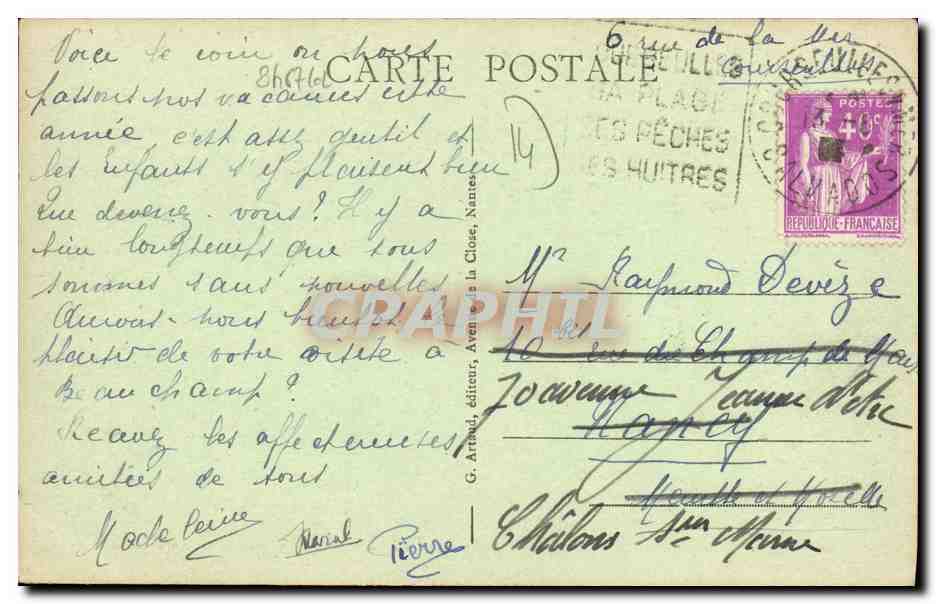 CARTE POSTALE
Voici le coin où nous
passons nos vacances cette
année c'est assez gentil et
les Enfants s'y plaisent bien
Que devenez-vous? Il y a
bien longtemps que nous
sommes sans nouvelles
Aurons-nous bientôt le
plaisir de votre visite à
Beauchamp?
Recevez les affectueuses
amitiés de tous
Madeleine Marcel Pierre
84876
14
G. Artaud, éditeur, Avenue de la Close, Nantes
6 rue de la Mer
Courseulles
COURSEULLES
SA PLAGE
SES PÊCHES
SES HUITRES
CALVADOS
POSTES
40c
RÉPUBLIQUE-FRANÇAISE
Mr Raymond Devèze
10 bis rue du Champ de Mars
70 avenue Jeanne d'Arc
Nancy
Meurthe et Moselle
Châlons sur Marne
CPAPHIL